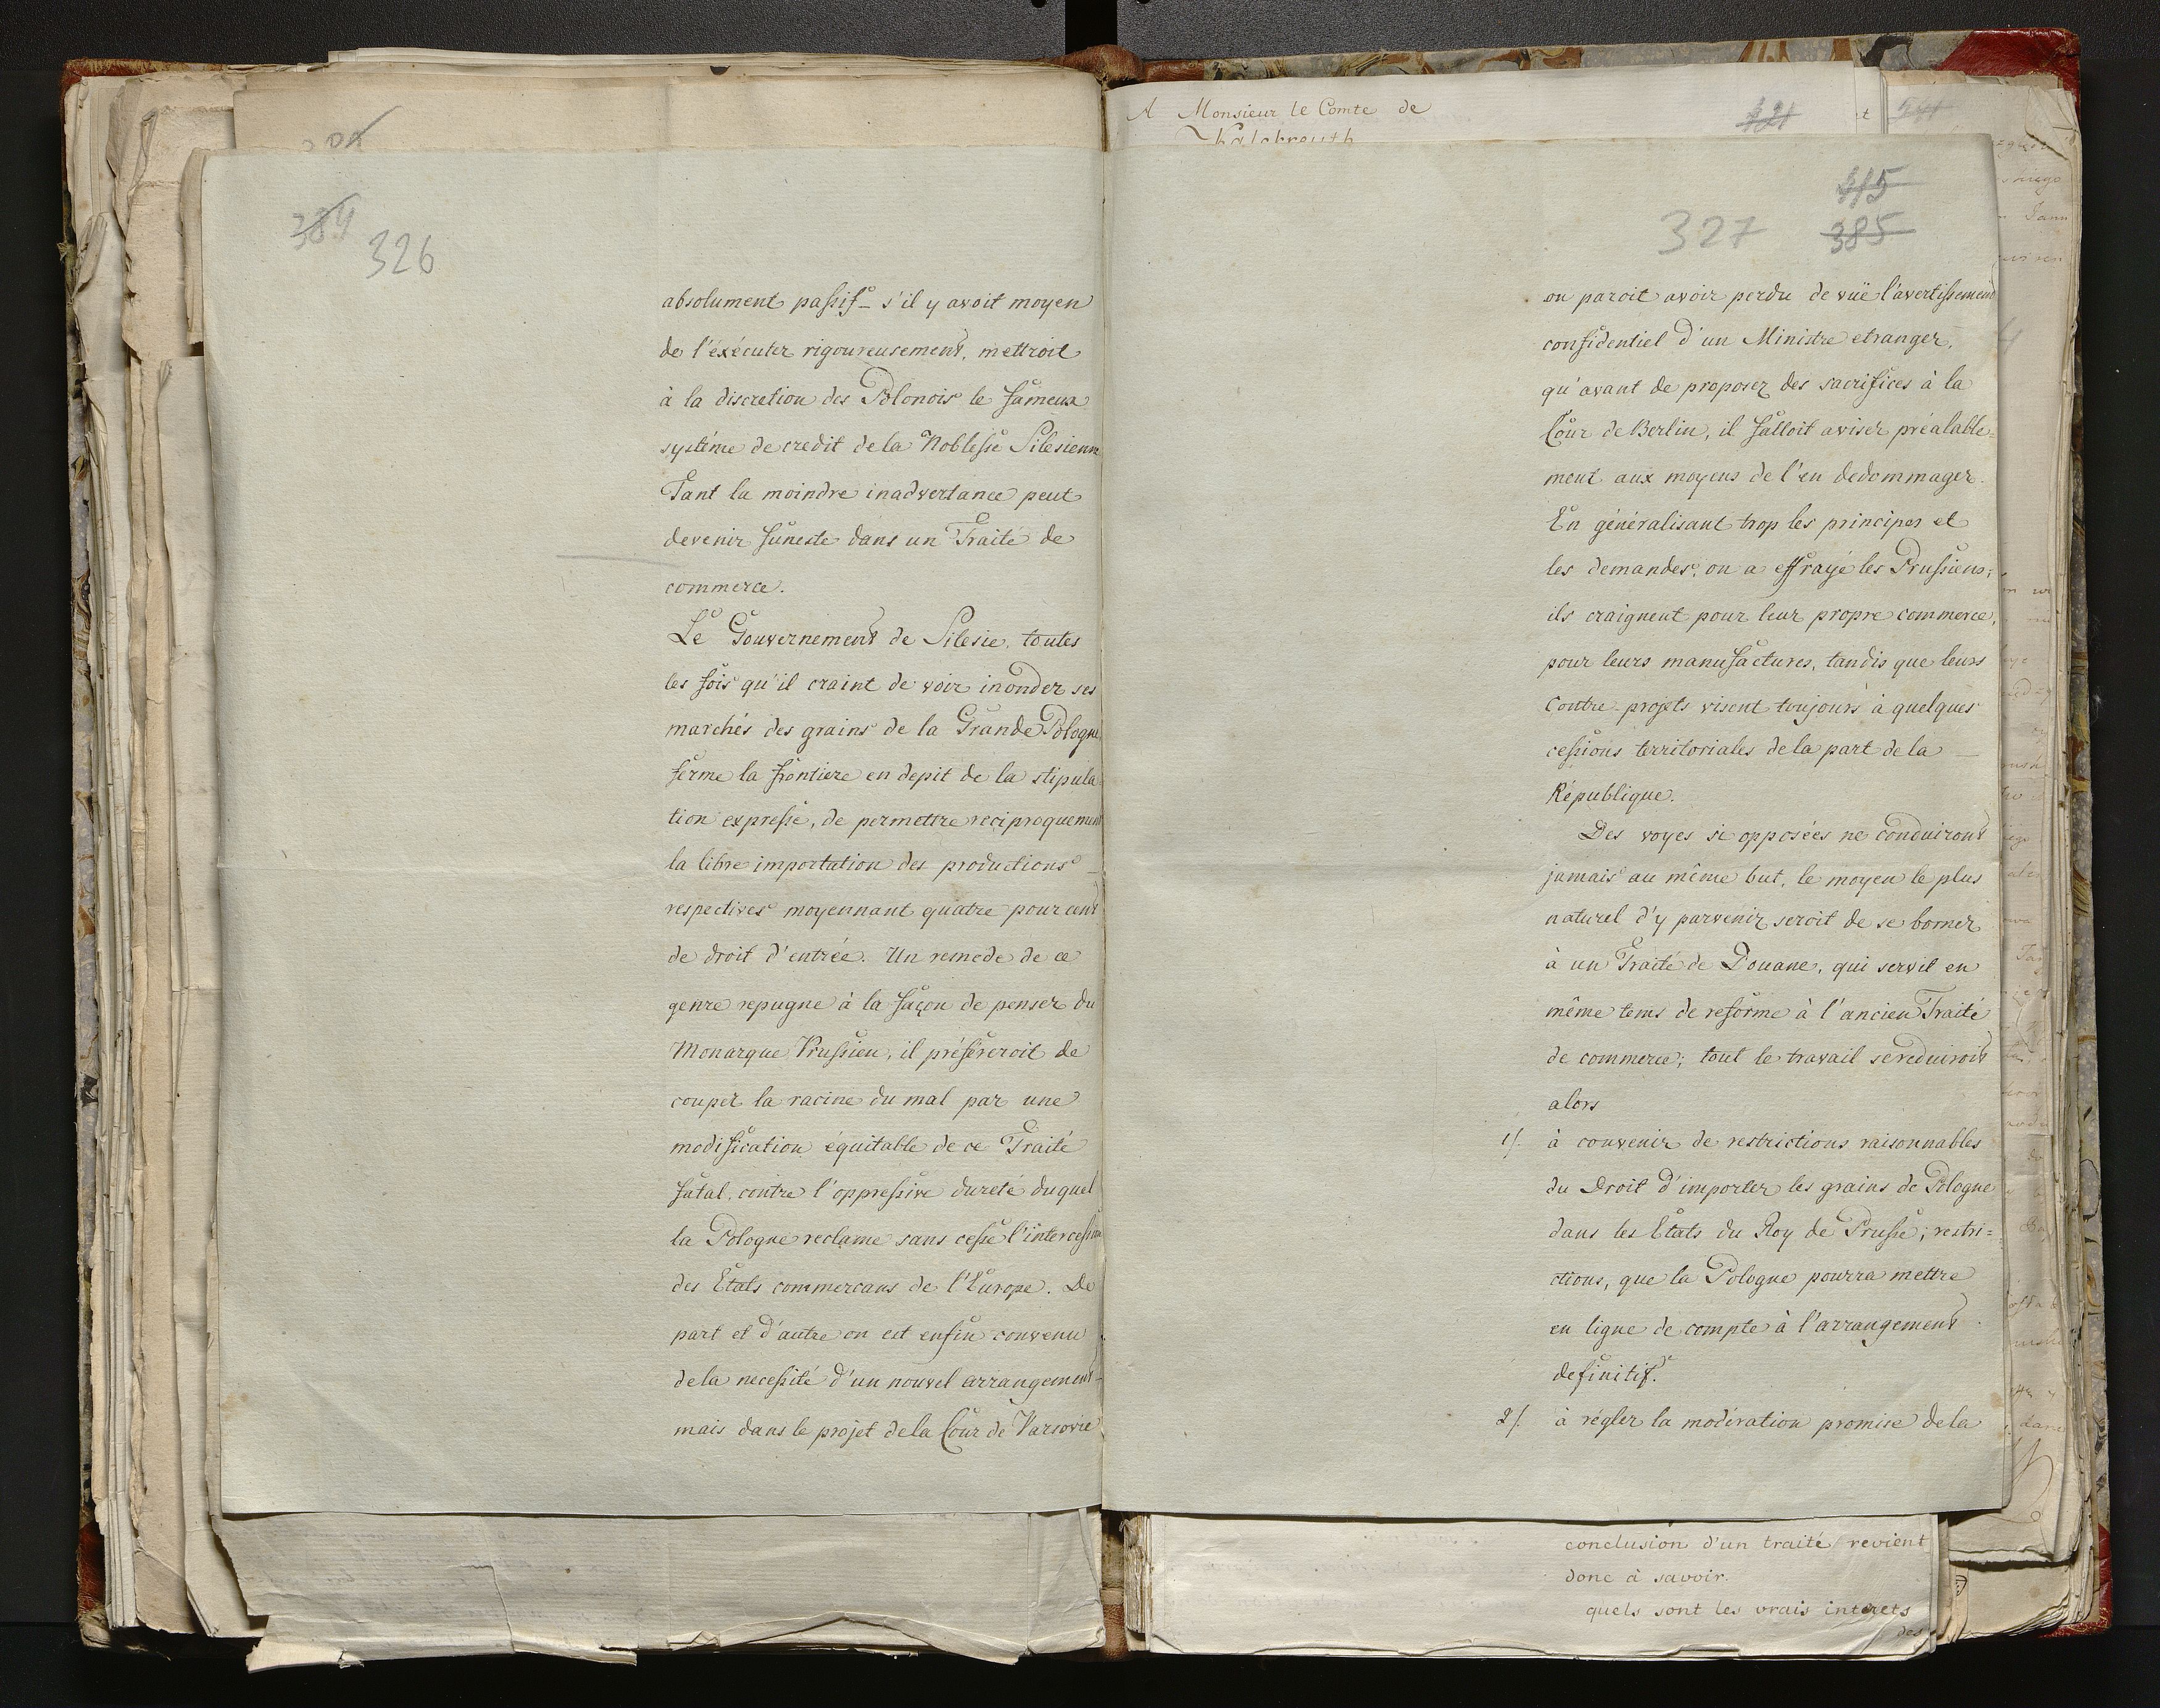 389 326
absolument passif _ s'il y avoit moyen
de l'éxécuter rigoureusement, mettroit
à la discretion des Polonois le fameux
systéme de credit de la Noblesse Silesienne
Tant la moindre inadvertance peut
devenir funeste dans un Traité de
commerce.
Le Gouvernement de Silesie, toutes
les fois qu'il craint de voir inonder ses
marchés des grains de la Grande Pologne,
ferme la frontiere en depit de la stipula-
tion expresse, de permettre reciproquement
la libre importation des productions _
respectives moyennant quatre pour cent
de droit d'entrée. Un remede de ce
genre repugne à la façon de penser du
Monarque Prussien, il préféreroit de
couper la racine du mal par une
modification équitable de ce Traité
fatal, contre l'oppressive dureté duquel
la Pologne reclame sans cesse l'intercession
des Etats commercans de l'Europe. De
part et d'autre on est enfin convenu
de la necessité d'un nouvel arrangement _
mais dans le projet de la Cour de Varsovie
A Monsieur le Comte de
Kalckreuth
421
415
327 385
on paroit avoir perdu de vuë l'avertissement
confidentiel d'un Ministre etranger,
qu'avant de proposer des sacrifices à la
Cour de Berlin, il falloit aviser préalable=
ment aux moyens de l'en dedommager.
En généralisant trop les principes et
les demandes, on a effrayé les Prussiens;
ils craignent pour leur propre commerce,
pour leurs manufactures, tandis que leurs
Contre-projets visent toujours à quelques
cessions territoriales de la part de la _
République.
Des voyes si opposées ne conduiront
jamais au même but, le moyen le plus
naturel d'y parvenir seroit de se borner
à un Traité de Douane, qui servit en
même tems de reforme à l'ancien Traité
de commerce; tout le travail se reduiroit
alors
1/. à convenir de restrictions raisonnables
du Droit d'importer les grains de Pologne
dans les Etats du Roy de Prusse; restri=
ctions, que la Pologne pourra mettre
en ligne de compte à l'arrangement
definitif.
2/. à régler la modération promise de la
conclusion d'un traité revient
donc à savoir.
quels sont les vrais interets
des